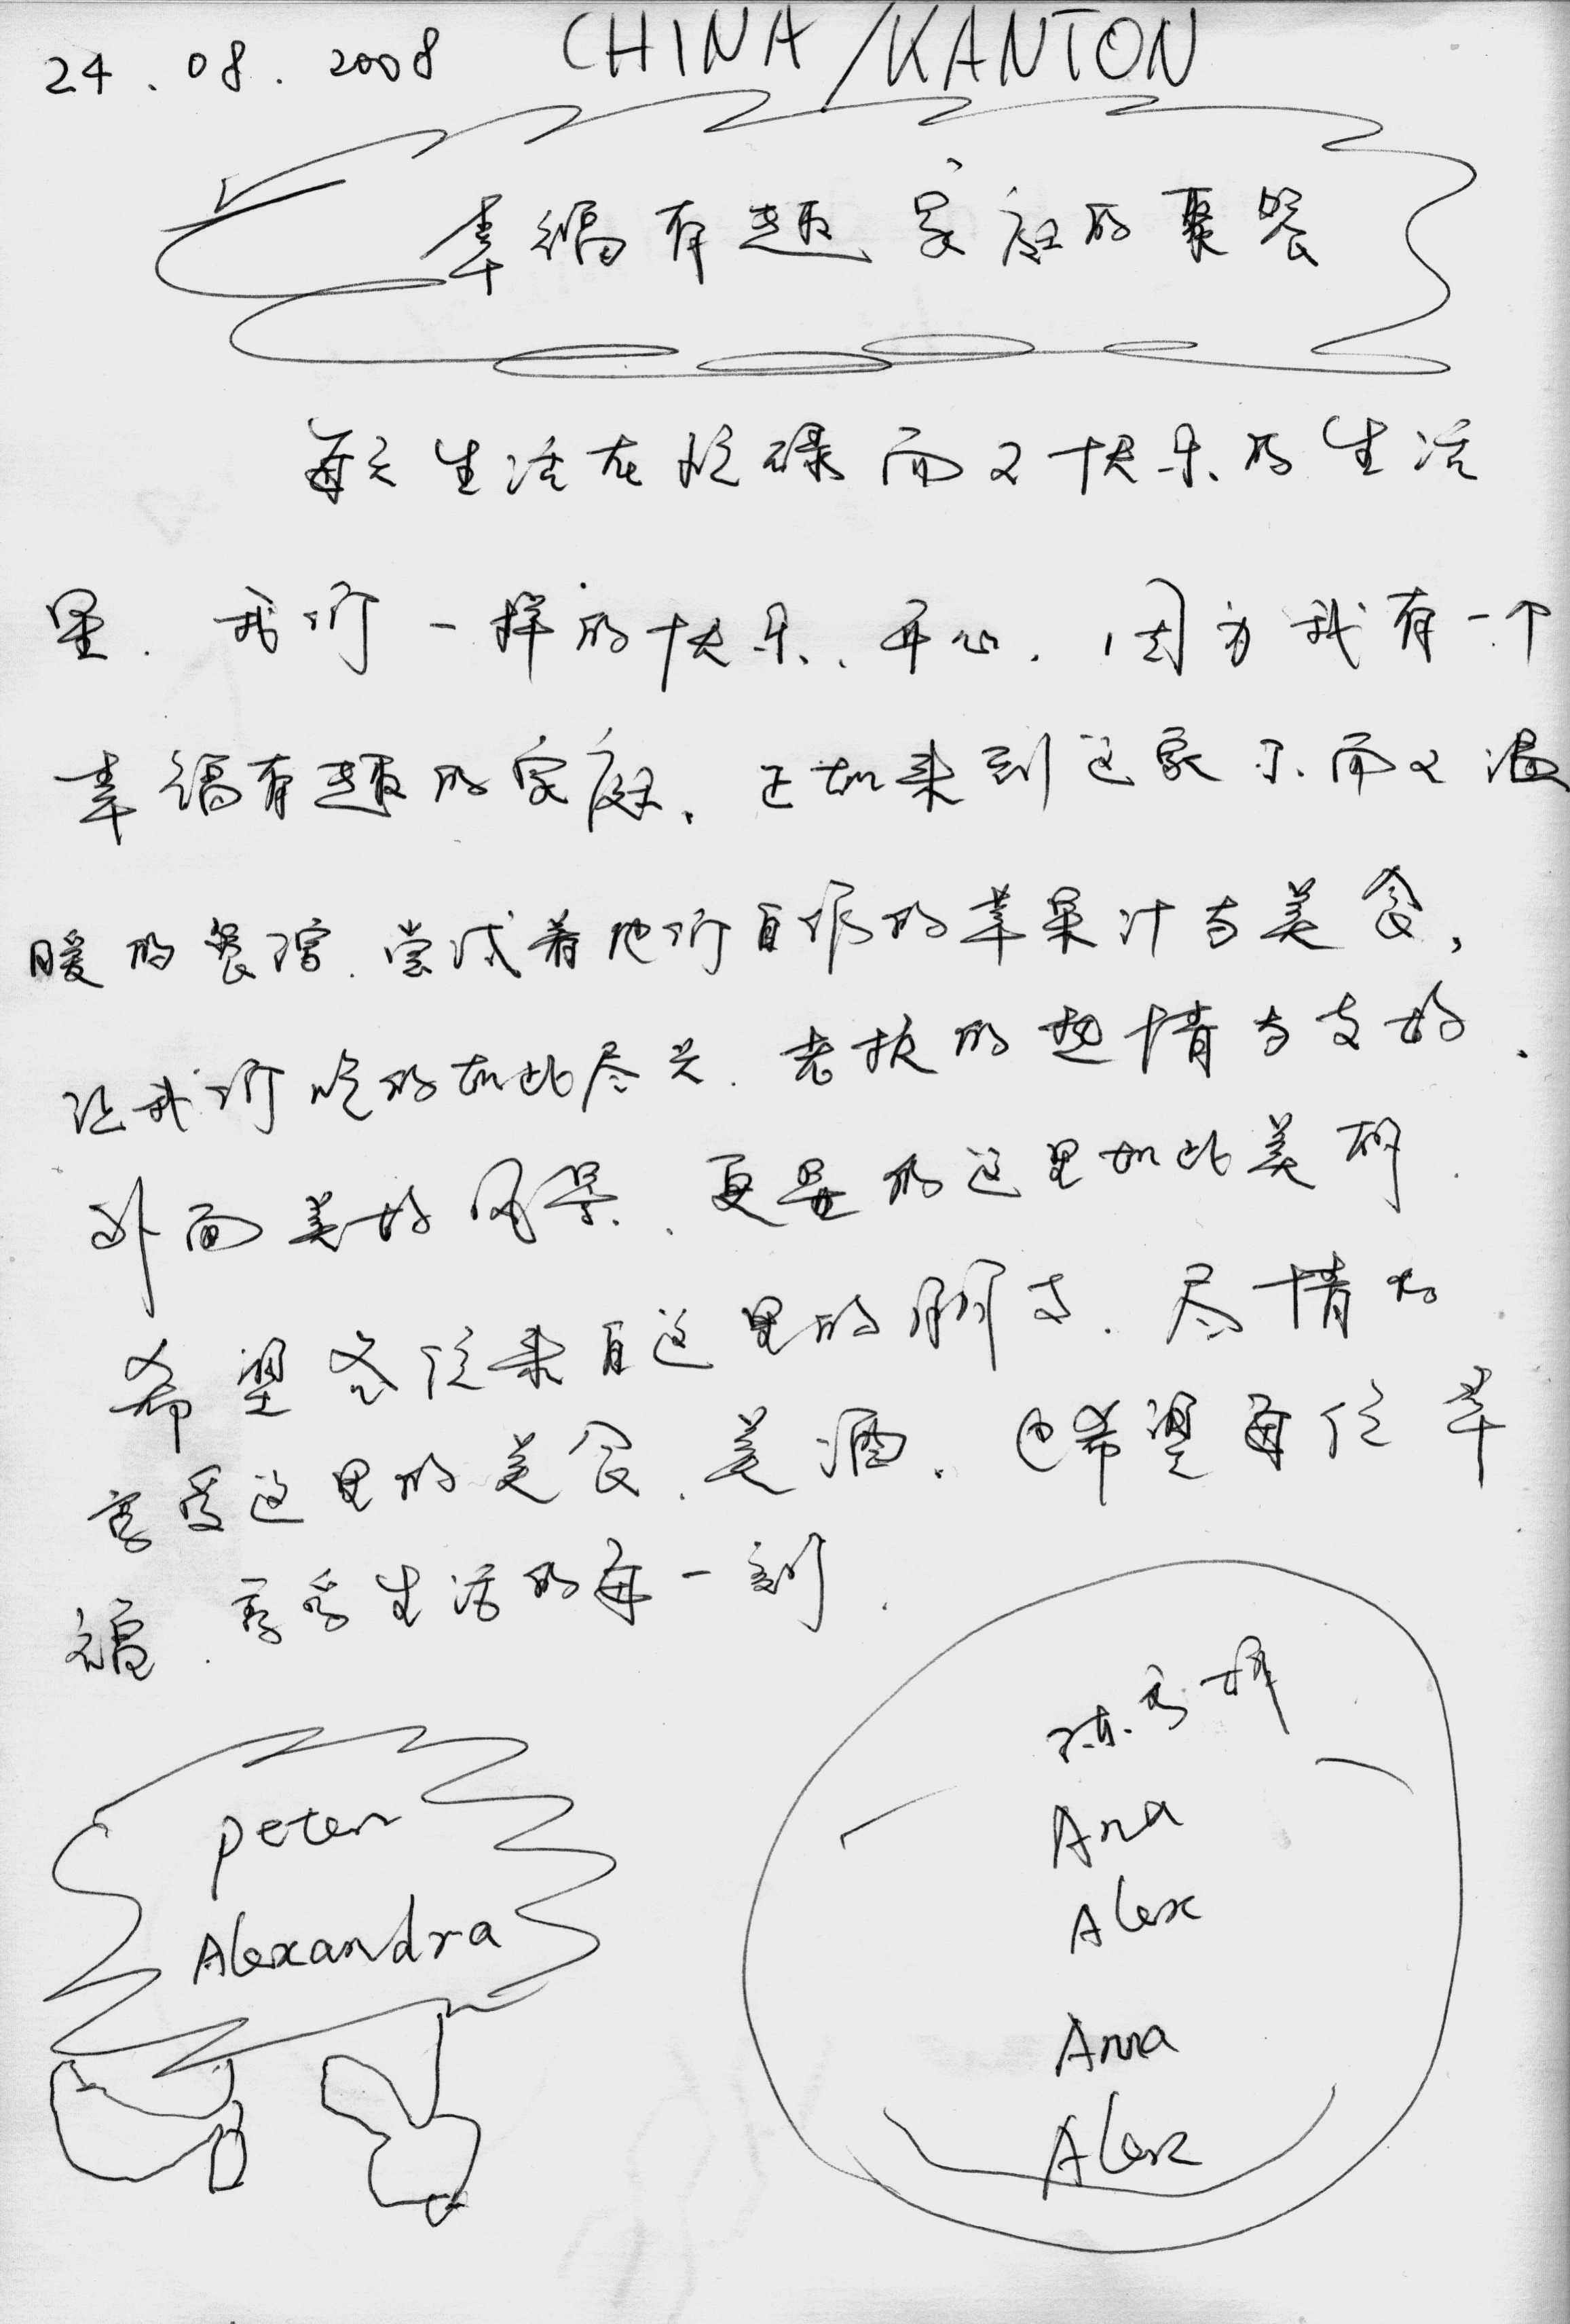 24.08.2008 CHINA/KANTON
幸福有趣家庭的聚餐
每天生活在忙碌而又快乐的生活
里.我们一样的快乐、开心.因为我有一个
幸福有趣的家庭、正如来到这家 而又温
暖的餐馆.尝试着他们自酿的苹果汁与美食,
让我们吃的如此尽兴.老板的热情与友好.
外面美好风景、更是 这里如此美丽.
希望各位来自这里的朋友.尽情的
享受这里的美食.美酒.也希望每位幸
福.享受生活的每一刻.
peter
Alexandra
Ana
Alex
Anna
Alex